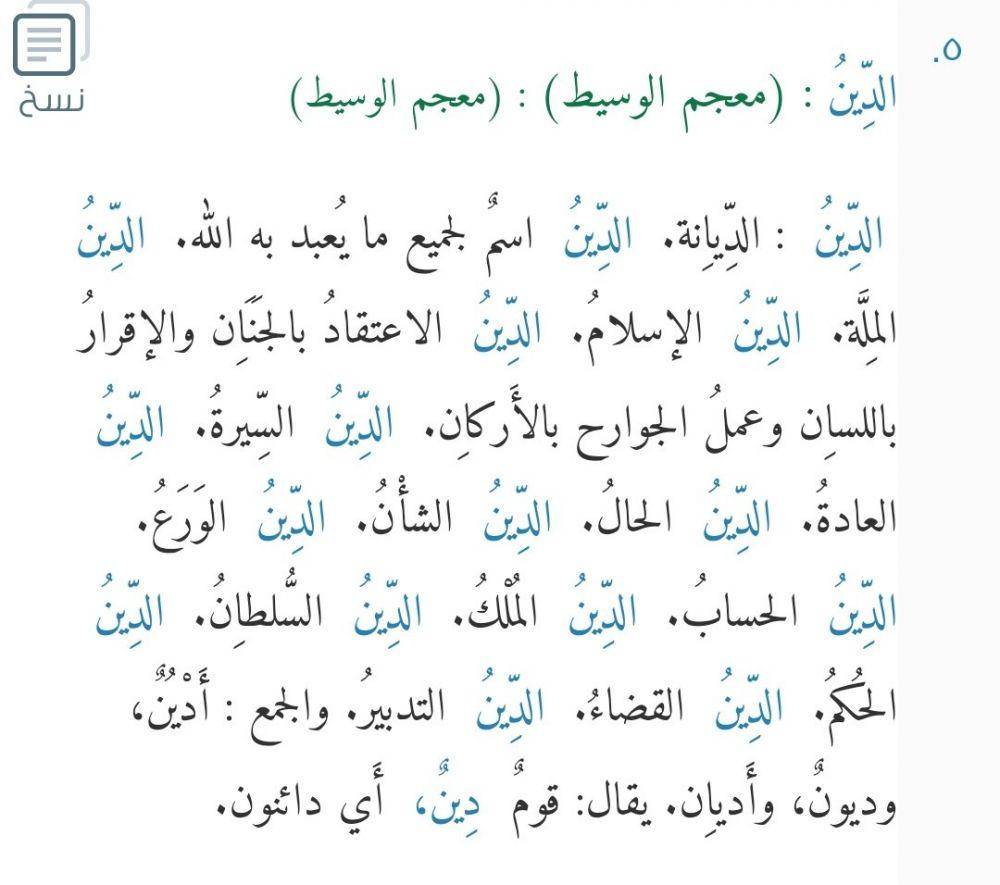 ٥.
الدِّينُ : (معجم الوسيط) : (معجم الوسيط)
نسخ
الدِّينُ : الدِّيِانة. الدِّينُ اسمٌ لجميع ما يُعبد به الله. الدِّينُ
المِلَّة. الدِّينُ الإسلامُ. الدِّينُ الاعتقادُ بالجنَان والإقرارُ
باللسانِ وعملُ الجوارح بالأَركانِ. الدِّينُ السِّيرةُ. الدِّينُ
العادةُ. الدِّينُ الحالُ. الدِّينُ الشأْنُ. الدِّينُ الوَرَعُ.
الدِّينُ الحسابُ. الدِّينُ المُلْكُ. الدِّينُ السُّلطانُ. الدِّينُ
الحُكمُ. الدِّينُ القضاءُ. الدِّينُ التدبيرُ. والجمع : أَدْيُنٌ،
وديونٌ، وأَديِان. يقال: قومٌ دِينٌ، أَي دائنون.